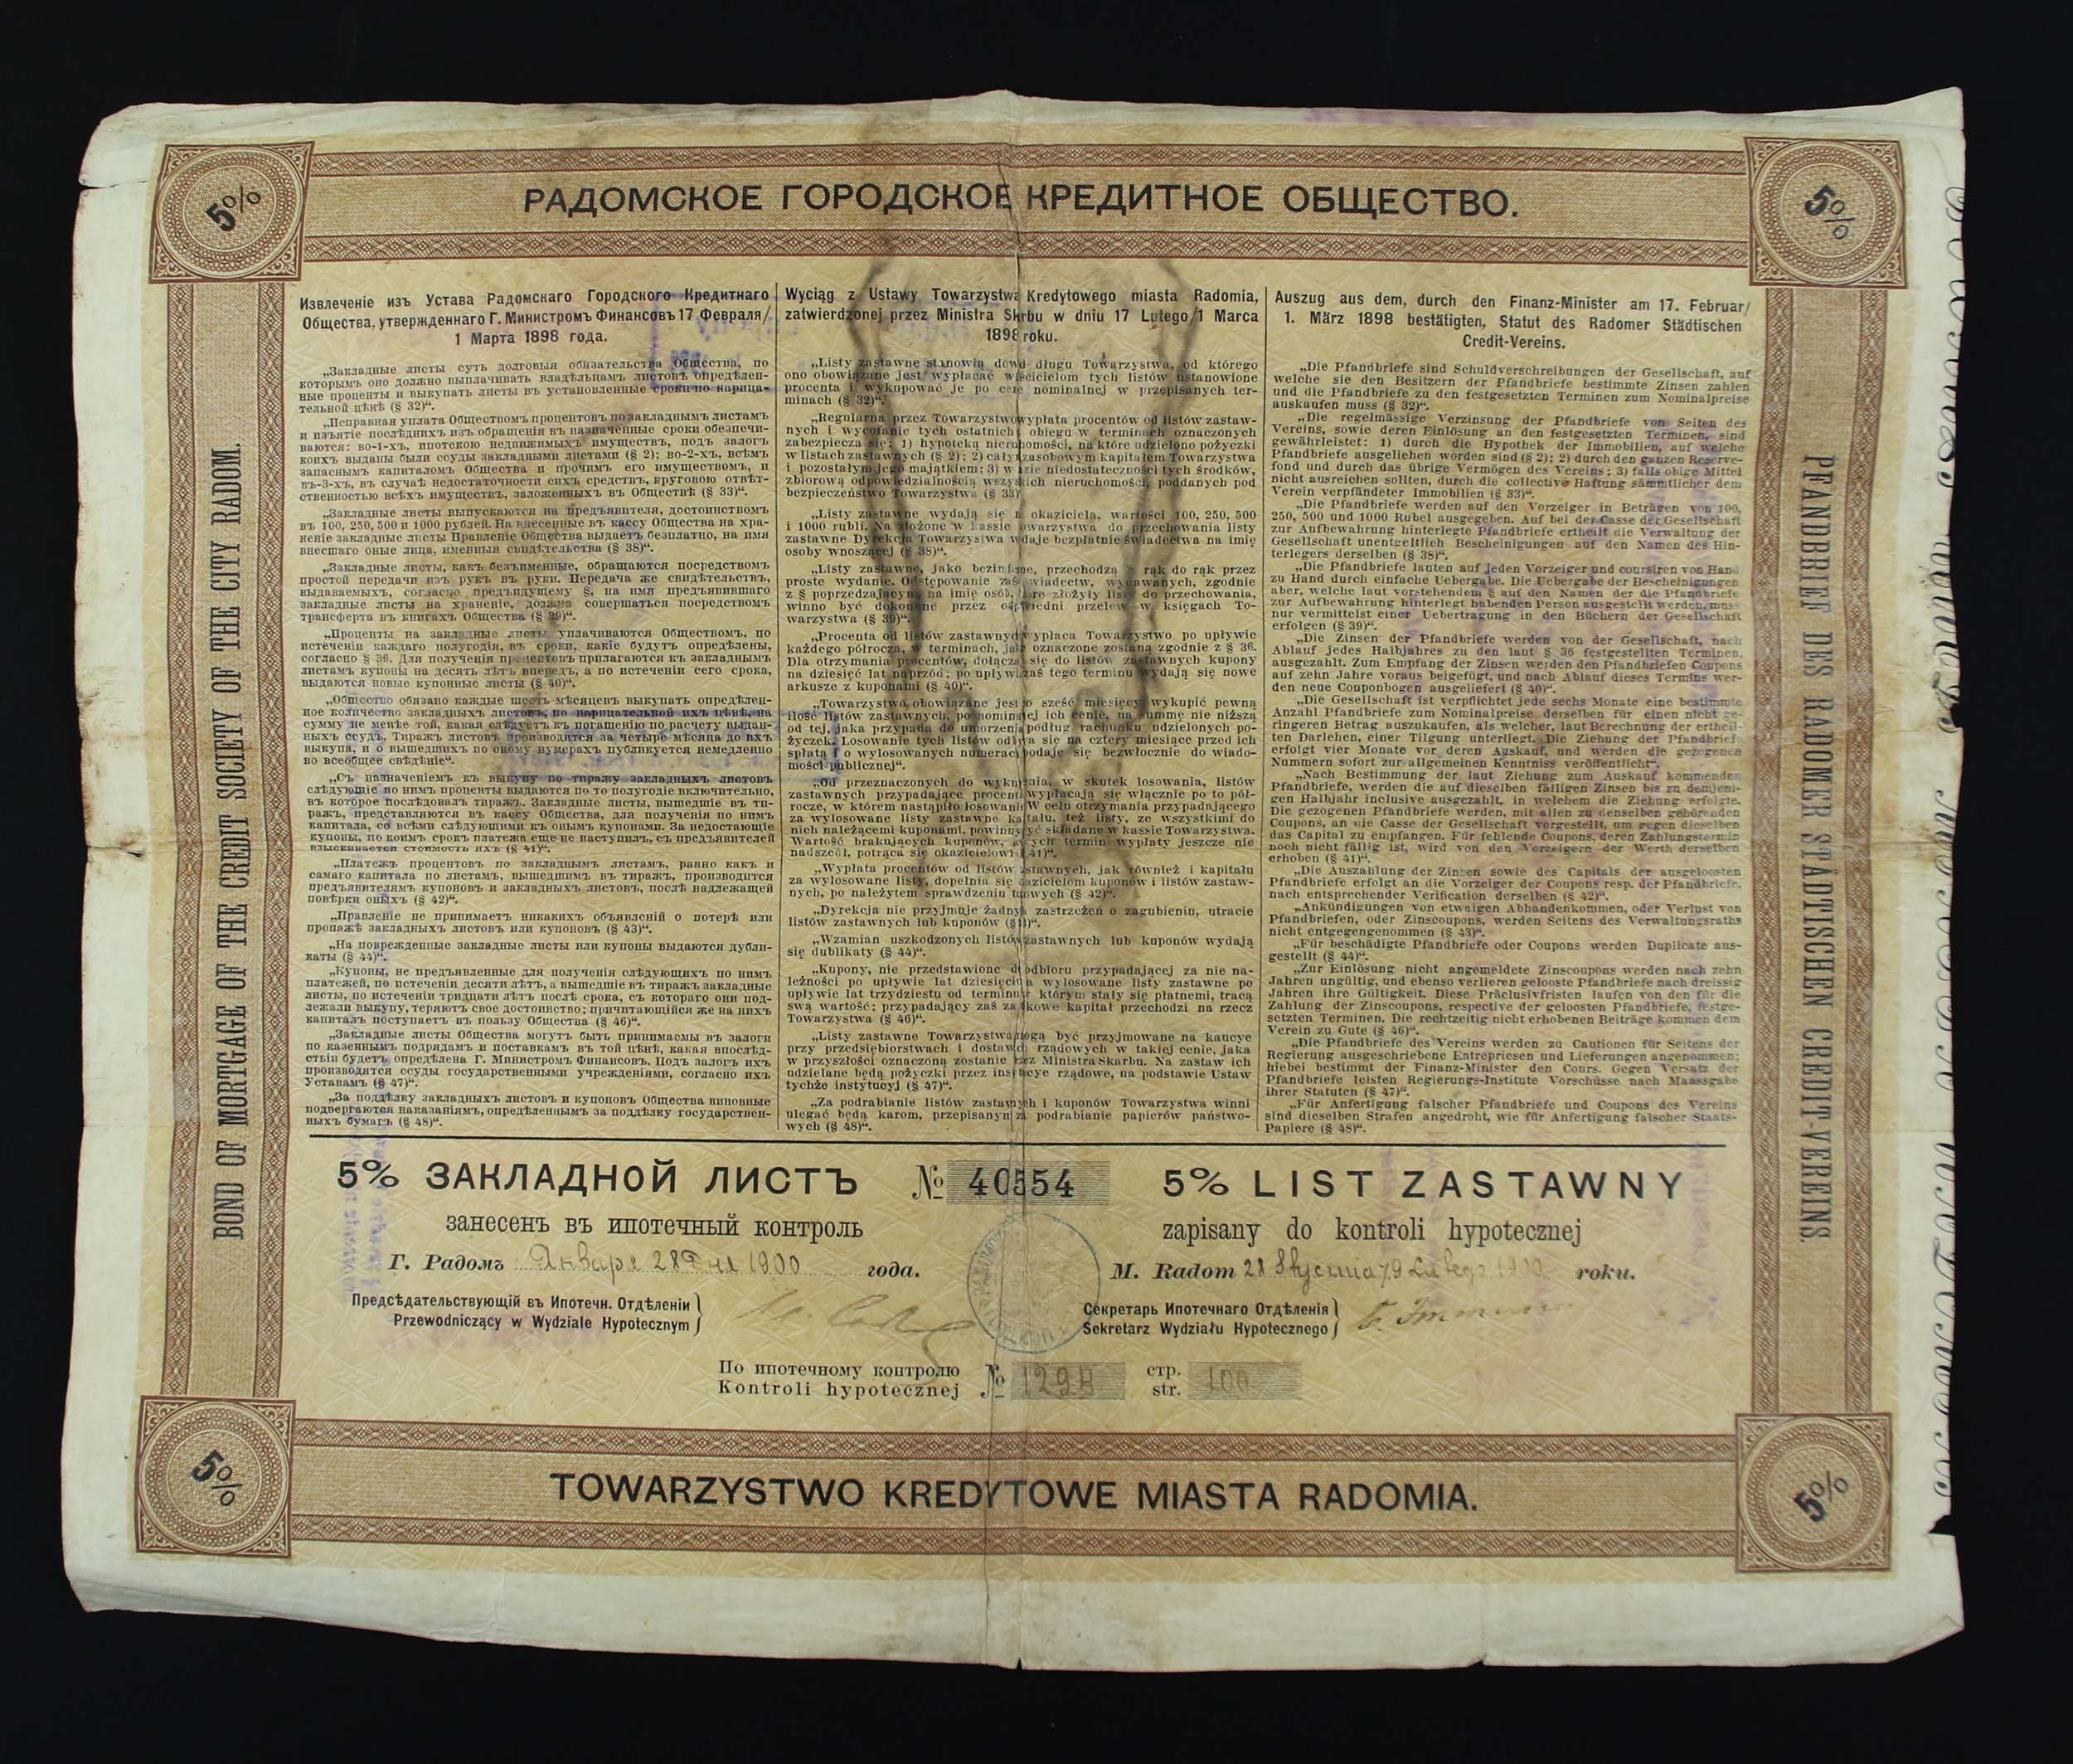 РАДОМСКОЕ ГОРОДСКОЕ КРЕДИТНОЕ ОБЩЕСТВО.
5%
5%
BOND OF MORTGAGE OF THE CREDIT SOCIETY OF THE CITY RADOM.
Извлеченіе изъ Устава Радомскаго Городского Кредитнаго
Общества, утвержденнаго Г. Министромъ Финансовъ 17 Февраля/
1 Марта 1898 года.
„Закладные листы суть долговыя обязательства Общества, по
которымъ оно должно выплачивать владѣльцамъ листовъ опредѣлен-
ные проценты и выкупать листы въ установленные сроки по нарица-
тельной цѣнѣ (§ 32)“.
„Исправная уплата Обществомъ процентовъ по закладнымъ листамъ
и изъятіе послѣднихъ изъ обращенія въ назначенные сроки обезпечи-
ваются: во-1-хъ, ипотекою недвижимыхъ имуществъ, подъ залогъ
коихъ выданы были ссуды закладными листами (§ 2); во-2-хъ, всѣмъ
запаснымъ капиталомъ Общества и прочимъ его имуществомъ, и
въ-3-хъ, въ случаѣ недостаточности сихъ средствъ, круговою отвѣт-
ственностью всѣхъ имуществъ, заложенныхъ въ Обществѣ (§ 33)“.
„Закладные листы выпускаются на предъявителя, достоинствомъ
въ 100, 250, 500 и 1000 рублей. На внесенные въ кассу Общества на хра-
неніе закладные листы Правленіе Общества выдаетъ безплатно, на имя
внесшаго оные лица, именныя свидѣтельства (§ 38)“.
„Закладные листы, какъ безъименные, обращаются посредствомъ
простой передачи изъ рукъ въ руки. Передача же свидѣтельствъ,
выдаваемыхъ, согласно предъидущему §, на имя предъявившаго
закладные листы на храненіе, должна совершаться посредствомъ
трансферта въ книгахъ Общества (§ 39)“.
„Проценты на закладные листы уплачиваются Обществомъ, по
истеченіи каждаго полугодія, въ сроки, какіе будутъ опредѣлены,
согласно § 36. Для полученія процентовъ прилагаются къ закладнымъ
листамъ купоны на десять лѣтъ впередъ, а по истеченіи сего срока,
выдаются новые купонные листы (§ 40)“.
„Общество обязано каждые шесть мѣсяцевъ выкупать опредѣлен-
ное количество закладныхъ листовъ, по нарицательной ихъ цѣнѣ, на
сумму не менѣе той, какая слѣдуетъ къ погашенію по расчету выдан-
ныхъ ссудъ. Тиражъ листовъ производится за четыре мѣсяца до ихъ
выкупа, и о вышедшихъ по оному нумерахъ публикуется немедленно
во всеобщее свѣдѣніе“.
„Съ назначеніемъ къ выкупу по тиражу закладныхъ листовъ
слѣдующіе по нимъ проценты выдаются по то полугодіе включительно,
въ которое послѣдовалъ тиражъ. Закладные листы, вышедшіе въ ти-
ражъ, представляются въ кассу Общества, для полученія по нимъ
капитала, со всѣми слѣдующими къ онымъ купонами. За недостающіе
купоны, по коимъ срокъ платежа еще не наступилъ, съ предъявителей
взыскивается стоимость ихъ (§ 41)“.
„Платежъ процентовъ по закладнымъ листамъ, равно какъ и
самаго капитала по листамъ, вышедшимъ въ тиражъ, производится
предъявителямъ купоновъ и закладныхъ листовъ, послѣ надлежащей
повѣрки оныхъ (§ 42)“.
„Правленіе не принимаетъ никакихъ объявленій о потерѣ или
пропажѣ закладныхъ листовъ или купоновъ (§ 43)“.
„На поврежденные закладные листы или купоны выдаются дубли-
каты (§ 44)“.
„Купоны, не предъявленные для полученія слѣдующихъ по нимъ
платежей, по истеченіи десяти лѣтъ, а вышедшіе въ тиражъ закладные
листы, по истеченіи тридцати лѣтъ послѣ срока, съ котораго они под-
лежали выкупу, теряютъ свое достоинство; причитающійся же на нихъ
капиталъ поступаетъ въ пользу Общества (§ 46)“.
„Закладные листы Общества могутъ быть принимаемы въ залоги
по казеннымъ подрядамъ и поставкамъ въ той цѣнѣ, какая впослѣд-
ствіи будетъ опредѣлена Г. Министромъ Финансовъ. Подъ залогъ ихъ
производятся ссуды государственными учрежденіями, согласно ихъ
Уставамъ (§ 47)“.
„За поддѣлку закладныхъ листовъ и купоновъ Общества виновные
подвергаются наказаніямъ, опредѣленнымъ за поддѣлку государствен-
ныхъ бумагъ (§ 48)“.
Wyciąg z Ustawy Towarzystwa Kredytowego miasta Radomia,
zatwierdzonej przez Ministra Skrbu w dniu 17 Lutego/1 Marca
1898 roku.
„Listy zastawne stanowią dowd długu Towarzystwa, od którego
ono obowiązane jest wypłacać właścicielom tych listów ustanowione
procenta i wykupować je po cenie nominalnej w przepisanych ter-
minach (§ 32)“.
„Regularna przez Towarzystwo wypłata procentów od listów zastaw-
nych i wycofanie tych ostatnich z obiegu w terminach oznaczonych
zabezpiecza się: 1) hypoteką nieruchomości, na które udzielono pożyczki
w listach zastawnych (§ 2); 2) całym zasobowym kapitałem Towarzystwa
i pozostałym jego majątkiem; 3) w razie niedostateczności tych środków,
zbiorową odpowiedzialnością wszystkich nieruchomości, poddanych pod
bezpieczeństwo Towarzystwa (§ 33)
„Listy zastawne wydają się na okaziciela, wartości 100, 250, 500
i 1000 rubli. Na złożone w kassie Towarzystwa do przechowania listy
zastawne Dyrekcja Towarzystwa wydaje bezpłatnie świadectwa na imię
osoby wnoszącej (§ 38)“.
„Listy zastawne, jako bezimienne, przechodzą z rąk do rąk przez
proste wydanie. Odstępowanie zaś świadectw, wydawanych, zgodnie
z § poprzedzającym na imię osób, które złożyły listy do przechowania,
winno być dokonane przez odpowiedni przelew w księgach To-
warzystwa (§ 39)“.
„Procenta od listów zastawnych wypłaca Towarzystwo po upływie
każdego półrocza, w terminach, jakie oznaczone zostaną zgodnie z § 36.
Dla otrzymania procentów, dołącza się do listów zastawnych kupony
na dziesięć lat naprzód; po upływie zaś tego terminu wydają się nowe
arkusze z kuponami (§ 40)“.
„Towarzystwo obowiązane jest co sześć miesięcy wykupić pewną
ilość listów zastawnych, po nominalnej ich cenie, na summę nie niższą
od tej, jaka przypada do umorzenia podług rachunku udzielonych po-
życzek. Losowanie tych listów odbywa się na cztery miesiące przed ich
spłatą i o wylosowanych numerach podaje się bezwłocznie do wiado-
mości publicznej“.
„Od przeznaczonych do wykupienia, w skutek losowania, listów
zastawnych przypadające procenta wypłacają się włącznie po to pół-
rocze, w którem nastąpiło losowanie. W celu otrzymania przypadającego
za wylosowane listy zastawne kapitału, też listy, ze wszystkimi do
nich należącemi kuponami, powinny być składane w kassie Towarzystwa.
Wartość brakujących kuponów, których termin wypłaty jeszcze nie
nadszedł, potrąca się okazicielowi (§ 41)“.
„Wypłata procentów od listów zastawnych, jak również i kapitału
za wylosowane listy, dopełnia się okazicielom kuponów i listów zastaw-
nych, po należytem sprawdzeniu takowych (§ 42)“.
„Dyrekcja nie przyjmuje żadnych zastrzeżeń o zagubieniu, utracie
listów zastawnych lub kuponów (§
„Wzamian uszkodzonych listów zastawnych lub kuponów wydają
się dublikaty (§ 44)“.
„Kupony, nie przedstawione do odbioru przypadającej za nie na-
leżności po upływie lat dziesięciu a wylosowane listy zastawne po
upływie lat trzydziestu od terminu w którym stały się płatnemi, tracą
swą wartość; przypadający zaś za takowe kapitał przechodzi na rzecz
Towarzystwa (§ 46)“.
„Listy zastawne Towarzystwa mogą być przyjmowane na kaucye
przy przedsiębiorstwach i dostawach rządowych w takiej cenie, jaka
w przyszłości oznaczoną zostanie przez Ministra Skarbu. Na zastaw ich
udzielane będą pożyczki przez instytucye rządowe, na podstawie Ustaw
tychże instytucyj (§ 47)“.
„Za podrabianie listów zastawnych i kuponów Towarzystwa winni
ulegać będą karom, przepisanym za podrabianie papierów państwo-
wych (§ 48)“.
Auszug aus dem, durch den Finanz-Minister am 17. Februar/
1. März 1898 bestätigten, Statut des Radomer Städtischen
Credit-Vereins.
„Die Pfandbriefe sind Schuldverschreibungen der Gesellschaft, auf
welche sie den Besitzern der Pfandbriefe bestimmte Zinsen zahlen
und die Pfandbriefe zu den festgesetzten Terminen zum Nominalpreise
auskaufen muss (§ 32)“.
„Die regelmässige Verzinsung der Pfandbriefe von Seiten des
Vereins, sowie deren Einlösung an den festgesetzten Terminen, sind
gewährleistet: 1) durch die Hypothek der Immobilien, auf welche
Pfandbriefe ausgeliehen worden sind (§ 2); 2) durch den ganzen Reserve-
fond und durch das übrige Vermögen des Vereins; 3) falls obige Mittel
nicht ausreichen sollten, durch die collective Haftung sämmtlicher dem
Verein verpfändeter Immobilien (§ 33)“.
„Die Pfandbriefe werden auf den Vorzeiger in Beträgen von 100,
250, 500 und 1000 Rubel ausgegeben. Auf bei der Casse der Gesellschaft
zur Aufbewahrung hinterlegte Pfandbriefe ertheilt die Verwaltung der
Gesellschaft unentgeltlich Bescheinigungen auf den Namen des Hin-
terlegers derselben (§ 38)“.
„Die Pfandbriefe lauten auf jeden Vorzeiger und coursiren von Hand
zu Hand durch einfache Uebergabe. Die Uebergabe der Bescheinigungen
aber, welche laut vorstehendem § auf den Namen der die Pfandbriefe
zur Aufbewahrung hinterlegt habenden Person ausgestellt werden, muss
nur vermittelst einer Uebertragung in den Büchern der Gesellschaft
erfolgen (§ 39)“.
„Die Zinsen der Pfandbriefe werden von der Gesellschaft, nach
Ablauf jedes Halbjahres zu den laut § 36 festgestellten Terminen,
ausgezahlt. Zum Empfang der Zinsen werden den Pfandbriefen Coupons
auf zehn Jahre voraus beigefügt, und nach Ablauf dieses Termins wer-
den neue Couponbogen ausgeliefert (§ 40)“.
„Die Gesellschaft ist verpflichtet jede sechs Monate eine bestimmte
Anzahl Pfandbriefe zum Nominalpreise derselben für einen nicht ge-
ringeren Betrag auszukaufen, als welcher, laut Berechnung der ertheil-
ten Darlehen, einer Tilgung unterliegt. Die Ziehung der Pfandbriefe
erfolgt vier Monate vor deren Auskauf, und werden die gezogenen
Nummern sofort zur allgemeinen Kenntniss veröffentlicht“.
„Nach Bestimmung der laut Ziehung zum Auskauf kommenden
Pfandbriefe, werden die auf dieselben fälligen Zinsen bis zu demjeni-
gen Halbjahr inclusive ausgezahlt, in welchem die Ziehung erfolgte.
Die gezogenen Pfandbriefe werden, mit allen zu denselben gehörenden
Coupons, an die Casse der Gesellschaft vorgestellt, um gegen dieselben
das Capital zu empfangen. Für fehlende Coupons, deren Zahlungstermin
noch nicht fällig ist, wird von den Vorzeigern der Werth derselben
erhoben (§ 41)“.
„Die Auszahlung der Zinsen sowie des Capitals der ausgeloosten
Pfandbriefe erfolgt an die Vorzeiger der Coupons resp. der Pfandbriefe,
nach entsprechender Verification derselben (§ 42)“.
„Ankündigungen von etwaigen Abhandenkommen, oder Verlust von
Pfandbriefen, oder Zinscoupons, werden Seitens des Verwaltungsraths
nicht entgegengenommen (§ 43)“.
„Für beschädigte Pfandbriefe oder Coupons werden Duplicate aus-
gestellt (§ 44)“.
„Zur Einlösung nicht angemeldete Zinscoupons werden nach zehn
Jahren ungültig, und ebenso verlieren gelooste Pfandbriefe nach dreissig
Jahren ihre Gültigkeit. Diese Präclusivfristen laufen von den für die
Zahlung der Zinscoupons, respective der geloosten Pfandbriefe, festge-
setzten Terminen. Die rechtzeitig nicht erhobenen Beiträge kommen dem
Verein zu Gute (§ 46)“.
„Die Pfandbriefe des Vereins werden zu Cautionen für Seitens der
Regierung ausgeschriebene Entreprisen und Lieferungen angenommen;
hiebei bestimmt der Finanz-Minister den Cours. Gegen Versatz der
Pfandbriefe leisten Regierungs-Institute Vorschüsse nach Maassgabe
ihrer Statuten (§ 47)“.
„Für Anfertigung falscher Pfandbriefe und Coupons des Vereins
sind dieselben Strafen angedroht, wie für Anfertigung falscher Staats-
Papiere (§ 48)“.
PFANDBRIEF DES RADOMER STÄDTISCHEN CREDIT-VEREINS.
5% ЗАКЛАДНОЙ ЛИСТЪ № 40554 5% LIST ZASTAWNY
занесенъ въ ипотечный контроль
zapisany do kontroli hypotecznej
Г. Радомъ Января 28 дня 1900 года.
M. Radom 28 Stycznia/9 Lutego 1900 roku.
Предсѣдательствующій въ Ипотечн. Отдѣленіи
Przewodniczący w Wydziale Hypotecznym
Секретарь Ипотечнаго Отдѣленія
Sekretarz Wydziału Hypotecznego
По ипотечному контролю
Kontroli hypotecznej
№ 1298
стр.
str.
100
5%
5%
TOWARZYSTWO KREDYTOWE MIASTA RADOMIA.